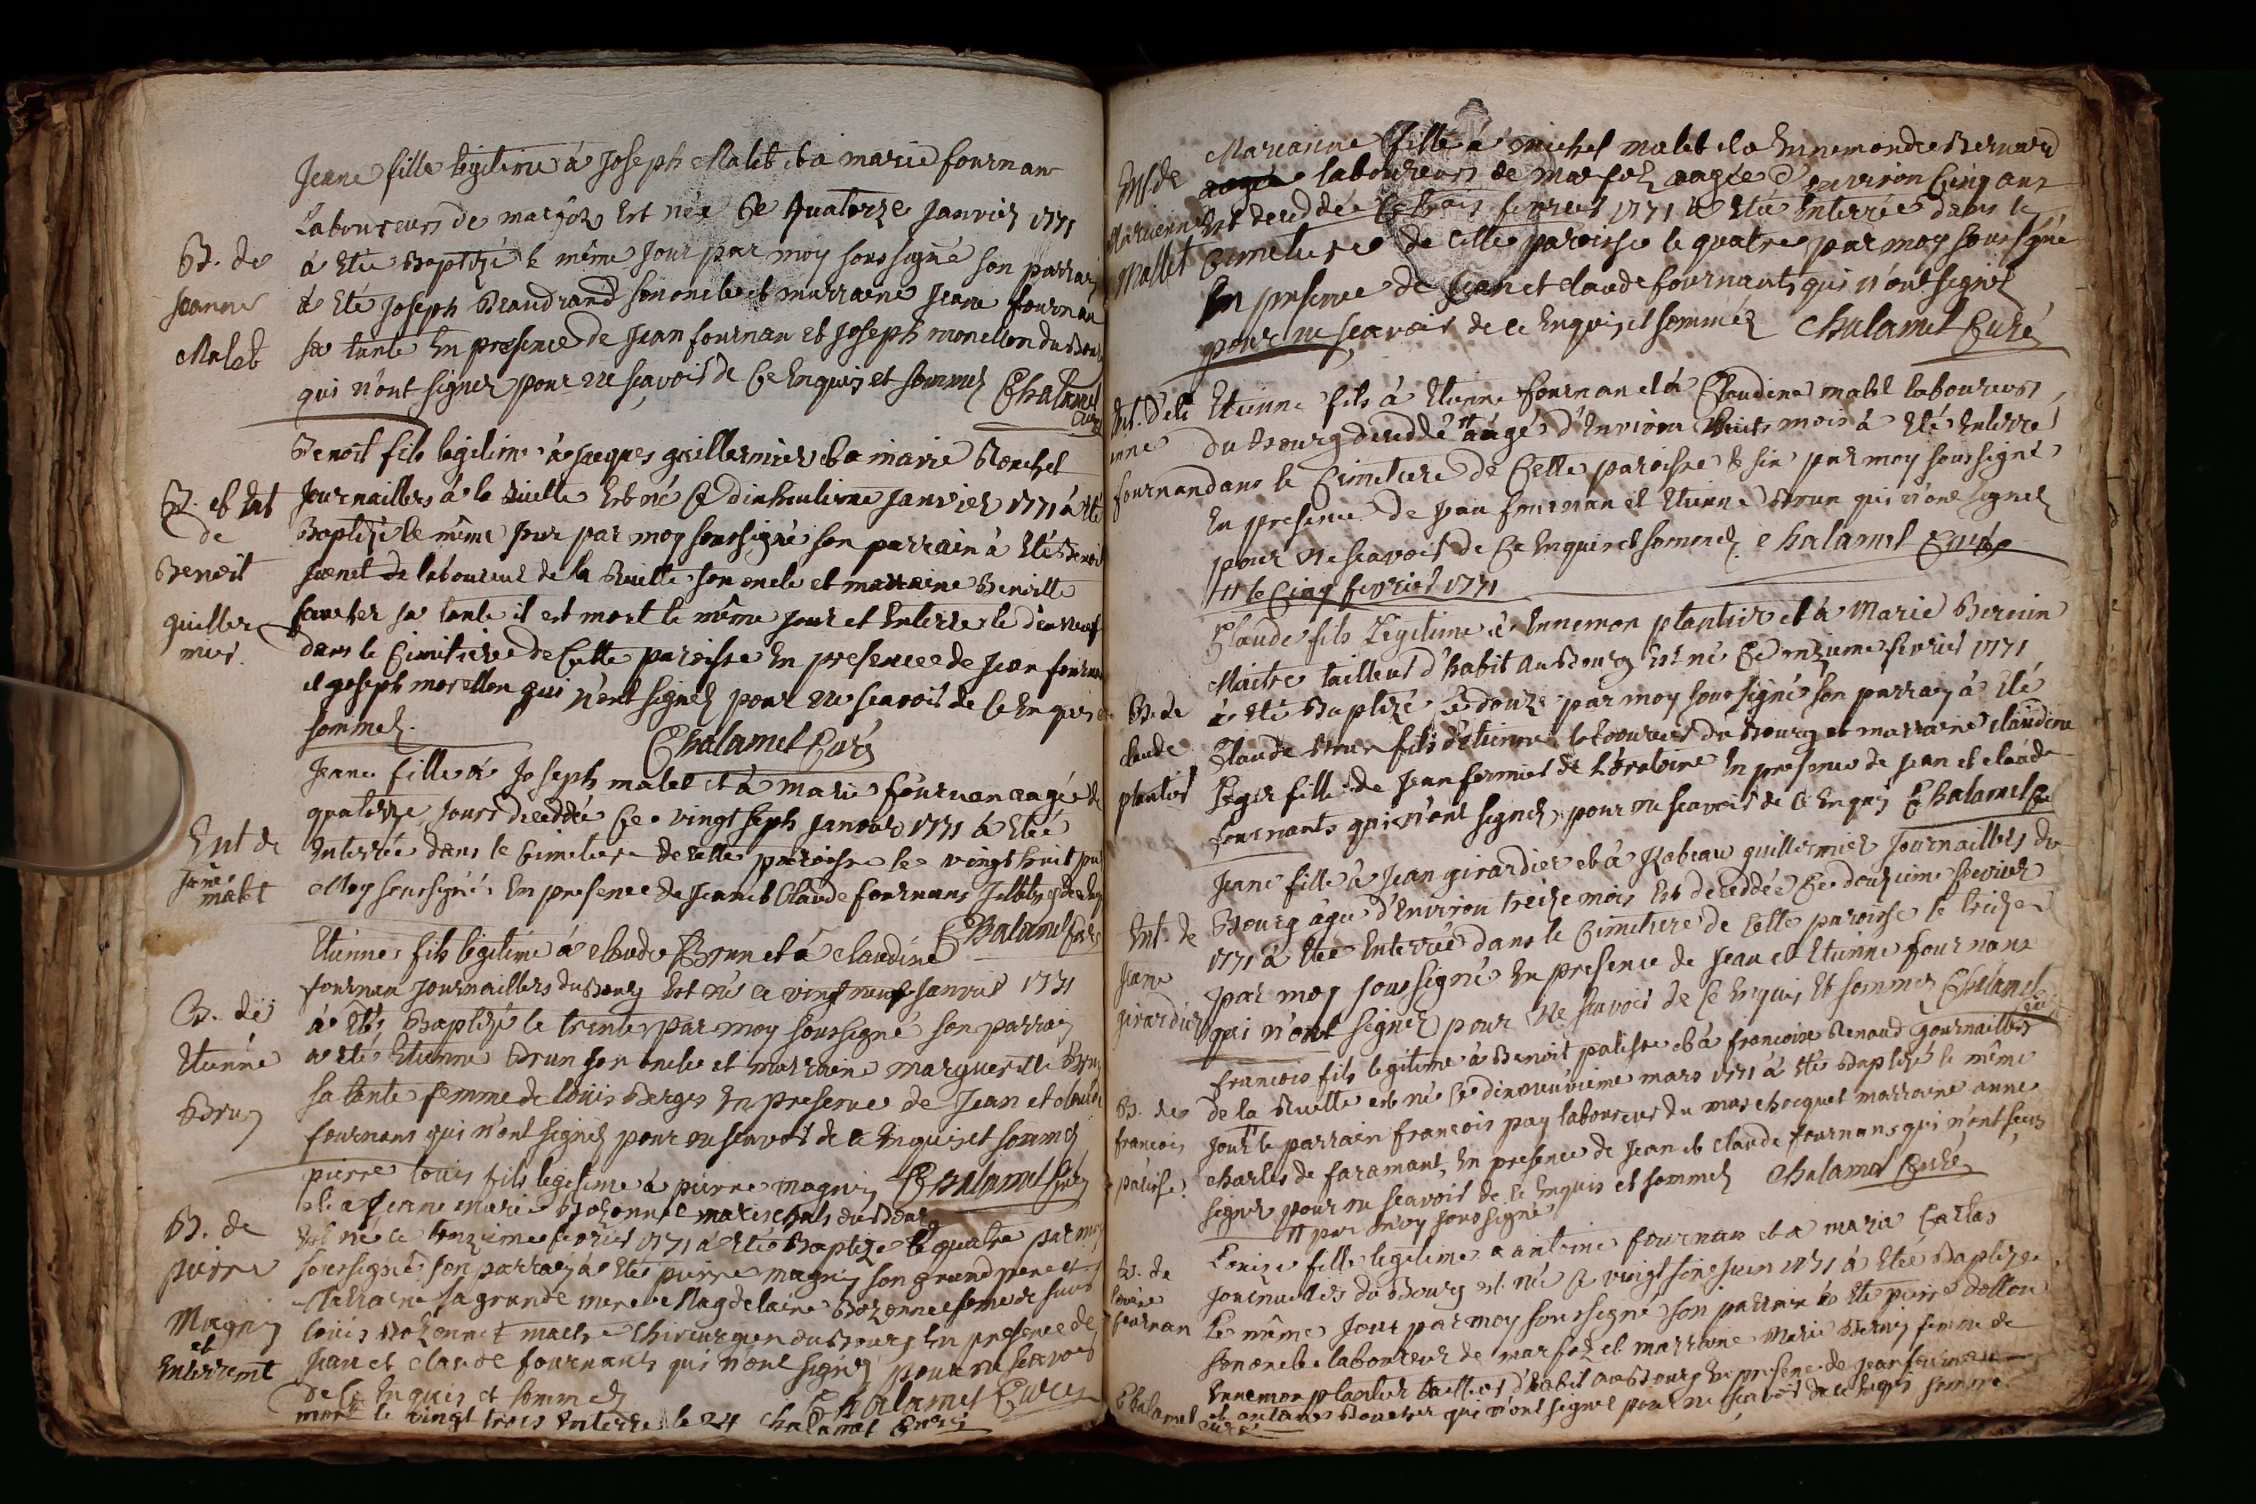 B. de
Jeanne
Malet
Jeane fille legitime à Joseph Malet et a marie fournan
Laboureurs de marfoz Est née Ce quatorze Janvier 1771
à Eté Baptizé le même Jour par moy soussigné son parrain
à Eté Joseph Beaudrand son oncle et marraine Jeane fournan
sa tante En presence de Jean fournan et Joseph morellon du Bour
qui n'ont signer pour ne sçavoir de Ce Enquis et sommez Chalamel
Curé
B. et Ent
de
Benoit
guiller
mier
Benoit fils legitime à Jacques guillermier et a marie Bouchet
Journailliers à la Ruelle Est né Ce dixhuitieme Janvier 1771 à eté
Baptizé le même Jour par moy soussigné son parrain à Eté Benoit
laboureur de la Ruelle son oncle et marraine Benoitte
sa tante il est mort le même Jour et Enterré le dixneuf
dans le Cimitiere de Cette paroisse En presence de Jean fournan
et Joseph morellon qui n'ont signez pour ne scavoir de Ce Enquis et
sommez. Chalamel Curé
Ent de
Jane
malet
Jeane fille à Joseph malet et à marie fournan aagée de
quatorze Jours deceddée Ce vingt Sept Janvier 1771 à Etée
Enterrée dans le Cimitiere de Cette paroisse le vingt huit par
Moy soussigné En presence de Jean et Claude fournans
Chalamel Curé
B. de
Etienne
Brun
Etienne fils legitime à claude Brun et à claudine
fournan Journailliers du Bourg Est né Ce vint neuf Janvier 1771
à Eté Baptizé le trente par moy soussigné son parrain
a eté Etienne Brun son oncle et marraine margueritte Brun
sa tante femme de louis Berger En presence de Jean et claude
fournans qui n'ont signez pour ne scavoir de Ce Enquis et sommez
Chalamel Curé
B. de
pierre
Magnin
et
Enterrement
pierre louis fils legitime à pierre magnin
et a Jeane marie Bozonnet marechals du Bourg
Est né Ce fevrier 1771 à Eté Baptizé le quatre par moy
soussigné son parrain à Eté pierre magnin son grand pere et
Marraine sa grande mere Magdelaine Bozonnet femme de sieur
louis Bozonnet maitre Chirurgien du Bourg En presence de
Jean et claude fournants qui n'ont signez pour ne scavoir
de Ce Enquis et sommez Chalamel Curé
mort le vingt trois Enterré le 24 Chalamel Curé
Ent de
Marianne
Mallet
Marianne fille à michel malet et a Ennemonde Bernard
laboureurs de marfoz aagée d'environ Cinq ans
Est deceddée Ce trois fevrier 1771 à Eté Enterrée dans le
Cimetiere de Cette paroisse le quatre par moy soussigné
En presence de Jean et claude fournants qui n'ont signez
pour ne scavoir de ce Enquis et sommez Chalamel Curé
Ent. d'eti
enne
fournan
Etienne fils à Etienne fournan et à Claudine malet laboureurs
du Bourg deceddé # aagé d'Environ huits mois à Eté Enterré
dans le Cimetiere de Cette paroisse le six par moy soussigné
En presence de Jean fournan et Etienne Brun qui n'ont signez
pour ne scavoir de Ce Enquis et sommez. Chalamel Curé
# le Cinq fevrier 1771
B. de
claude
plantier
Claude fils Legitime à Ennemon plantier et à Marie Bernin
Maitre tailleur d'habit au Bourg Est né Ce onzieme fevrier 1771
à Eté Baptizé Le douze par moy soussigné son parrain à Eté
Claude Brun fils d'etienne laboureur du Bourg et marraine claudine
Leger fille de Jean fermier de L'oratoire En presence de Jean et claude
fournants qui n'ont signez pour ne scavoir de Ce Enquis Chalamel Cu
Ent. de
Jeane
girardier
Jeane fille à Jean girardier et à Izabeau guillermier Journailliers du
Bourg âgée d'Environ treize mois Est deceddée Ce douzieme fevrier
1771 à Etée Enterrée dans le Cimetiere de Cette paroisse le treize
par moy soussigné En presence de Jean et Etienne fournans
qui n'ont signez pour Ne scavoir de Ce Enquis Et sommez Chalamel
curé
B. de
francois
palisse
francois fils legitime à Benoit palisse et à francoise Renaud Journailliers
de la Ruelle est né Ce dixneuvieme mars 1771 à Eté Baptizé le même
Jour # le parrain francois pay laboureur du mas chocquet marraine anne
charles de faramant En presence de Jean et claude fournans qui n'ont sceus
signer pour ne scavoir de Ce Enquis et sommez Chalamel Curé
# par moy soussigné
B. de
Louise
fournan
Louise fille legitime a antoine fournan et a marie Carlas
Journailliers du Bourg est née Ce vingt Juin 1771 à Etée Baptizée
Le même Jour par moy soussigné son parrain à Eté pierre dollon
son oncle laboureur de marfoz et marraine Marie Bernin femme de
Ennemon plantier tailleur d'habit au Bourg En presence de Jean fournan
et antoine Boucher qui n'ont signer pour ne scavoir de ce Enquis sommé
Chalamel
curé